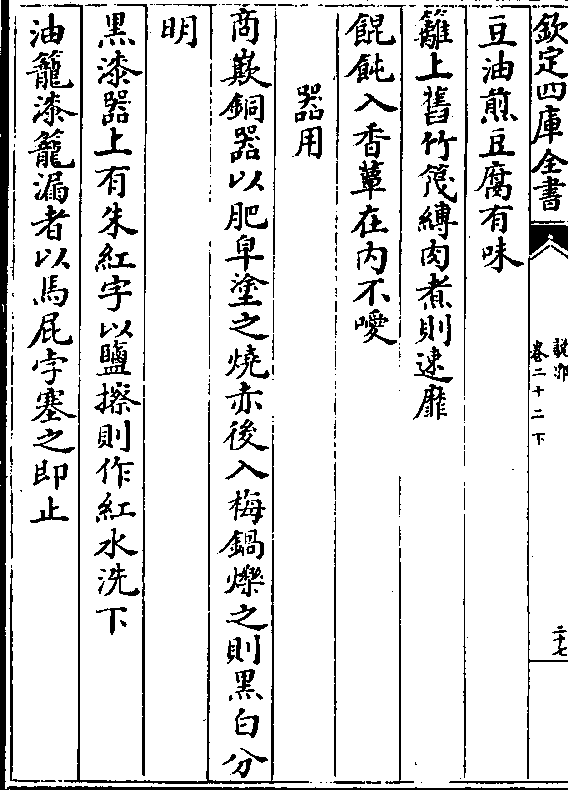 欽定四庫全書
說郛
卷二十二下
二十七
豆油煎豆腐有味
籬上舊竹篾縛肉煮則速靡
餛飩入香蕈在内不噯
器用
商嵌銅器以肥皁塗之燒赤後入梅鍋爍之則黑白分
明
黒漆器上有朱紅字以鹽擦則作紅水洗下
油籠漆籠漏者以馬屁孛塞之即止